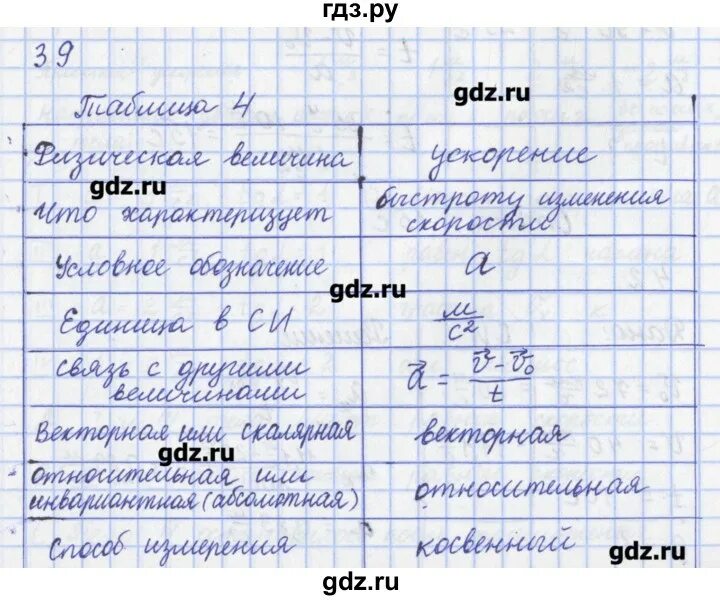 гдз.ру
39
Таблица 4
gdz.ru
Физическая величина
ускорение
gdz.ru
Что характеризует
быстроту изменения
скорости
Условное обозначение
a
gdz.ru
Единица в СИ
м/с²
связь с другими
величинами
a⃗ = (v⃗ - v⃗₀)/t
Векторная или скалярная
векторная
gdz.ru
относительная или
инвариантная (абсолютная)
относительная
Способ измерения
косвенный
gdz.ru
gdz.ru